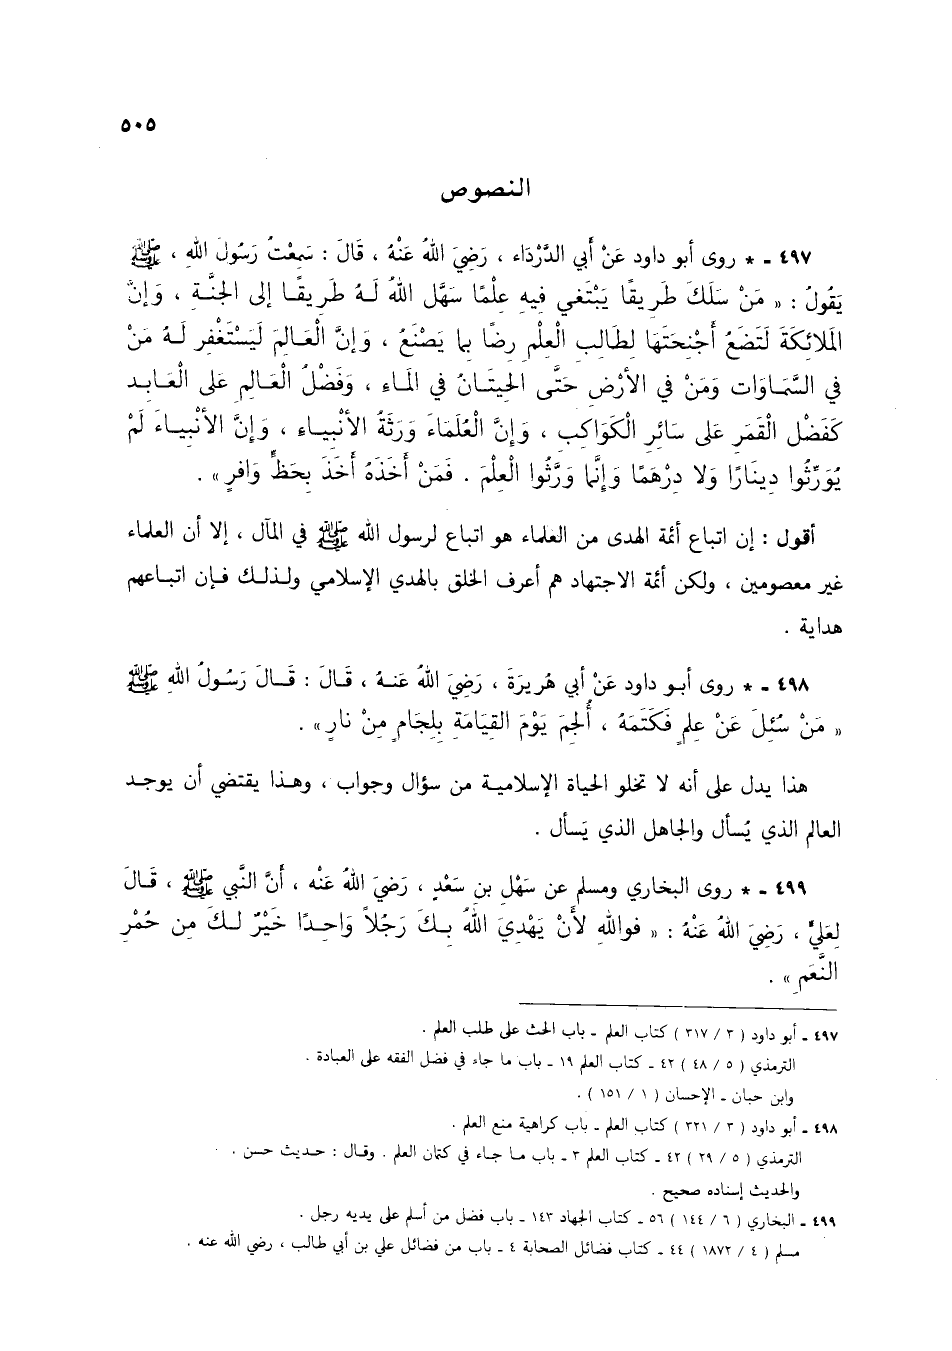 ٥٠٥
النصوص
٤٩٧ - * روى أبو داود عَنْ أَبي الدَّرْدَاء ، رَضِيَ اللهُ عَنْهُ ، قَالَ : سَمِعْتُ رَسُولَ اللهِ ، ﷺ
يَقُولُ : « مَنْ سَلَكَ طَرِيقًا يَبْتَغي فيهِ عِلْمًا سَهَّل اللهُ لَـهُ طَرِيقًـا إلى الجَنَّـةِ ، وَإنَّ
المَلائكَةَ لَتَضَعُ أَجْنحَتَهَا لِطَالِبِ الْعِلْمِ رضًا بما يَصْنَعُ ، وَإنَّ الْعَـالمَ لَيَسْتَغْفِر لَـهُ مَنْ
في السَّمَـاوَات وَمَنْ في الأرْضِ حَتَّى الحِيتَـانُ في المَـاء ، وَفَضْلُ الْعَـالِمِ عَلَى الْعَـابـد
كَفَضْل القَمَرِ عَلى سَائرِ الْكَوَاكبِ ، وَإنَّ الْعُلَمَاءَ وَرَثَةُ الأنْبيـاء ، وَإنَّ الأنْبيـاءَ لَمْ
يُوَرِّثُوا دينَارًا وَلا دِرْهَمًا وَإنَّما وَرَّثُوا الْعِلْمَ . فَمَنْ أَخَذَهُ أَخَذَ بِحَظٍّ وَافرٍ » .
أقول : إن اتباع أئمة الهدى من العلماء هو اتباع لرسول الله ﷺ في المآل ، إلا أن العلماء
غير معصومين ، ولكن أئمة الاجتهاد هم أعرف الخلق بالهدي الإسلامي ولـذلـك فـإن اتبـاعهم
هداية .
٤٩٨ - * روى أبـو داود عَنْ أبي هُرِيرَةَ ، رَضِيَ اللهُ عَنـهُ ، قَـالَ : قَـالَ رَسُـولُ اللهِ ﷺ
« مَنْ سُئِلَ عَنْ عِلمٍ فَكَتَمَهُ ، أُلْجِمَ يَوْمَ القِيَامَةِ بِلِجَامٍ مِنْ نَارٍ » .
هذا يدل على أنه لا تخلو الحياة الإسلاميـة من سؤال وجواب ، وهـذا يقتضي أن يوجـد
العالم الذي يُسأل والجاهل الذي يَسأل .
٤٩٩ - * روى البخاري ومسلم عن سَهْلِ بن سَعْدٍ ، رَضِيَ اللهُ عَنْه ، أَنَّ النَّبي ﷺ ، قَـالَ
لِعَليٍّ ، رَضِيَ اللهُ عَنْهُ : « فواللهِ لأَنْ يَهْدِيَ اللهُ بِـكَ رَجُلاً وَاحِـدًا خَيْرٌ لَـكَ مِن حُمْرِ
النَّعَمِ » .
٤٩٧ - أبو داود ( ٣ / ٣١٧ ) كتاب العلم - باب الحث على طلب العلم .
الترمذي ( ٥ / ٤٨ ) ٤٢ - كتاب العلم ١٩ - باب ما جاء في فضل الفقه على العبادة .
وابن حبان - الإحسان ( ١ / ١٥١ ) .
٤٩٨ - أبو داود ( ٣ / ٣٢١ ) كتاب العلم - باب كراهية منع العلم .
الترمذي ( ٥ / ٢٩ ) ٤٢ - كتاب العلم ٣ - باب مـا جـاء في كتمان العلم . وقـال : حـديث حسن .
والحديث إسناده صحيح .
٤٩٩ - البخاري ( ٦ / ١٤٤ ) ٥٦ - كتاب الجهاد ١٤٣ - باب فضل من أسلم على يديه رجل .
مسلم ( ٤ / ١٨٧٢ ) ٤٤ - كتاب فضائل الصحابة ٤ - باب من فضائل علي بن أبي طالب ، رضي الله عنه .